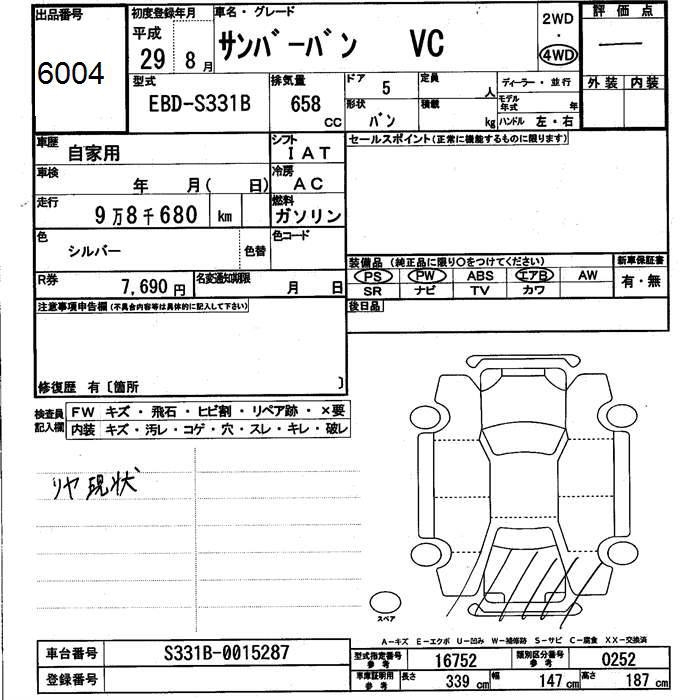 出品番号
6004
初度登録年月
平成
29 8月
車名・グレード
サンバーバン VC
2WD
・
4WD
評価点
―
型式
EBD-S331B
排気量
658
CC
ドア
5
形状
バン
定員
人
積載
kg
ディーラー・並行
モデル年式 年
ハンドル 左・右
外装 内装
車歴
自家用
シフト
IAT
セールスポイント(正常に機能するものに限ります)
車検
年 月( 日)
冷房
AC
走行
9万8千680 km
燃料
ガソリン
色
シルバー
色替
色コード
装備品 (純正品に限り〇をつけてください)
PS PW ABS エアB AW
SR ナビ TV カワ
新車保証書
有・無
R券
7,690円
名変通知期限
月 日
後日品
注意事項申告欄(不具合内容等は具体的に記入して下さい)
修復歴 有〔箇所 〕
検査員記入欄
FW キズ・飛石・ヒビ割・リペア跡・×要
内装 キズ・汚レ・コゲ・穴・スレ・キレ・破レ
リヤ現状
スペア
A-キズ E-エクボ U-凹み W-補修跡 S-サビ C-腐食 XX-交換済
車台番号 S331B-0015287
登録番号
型式指定番号 参考 16752
類別区分番号 参考 0252
車庫証明用 参考 長さ 339cm 幅 147cm 高さ 187cm